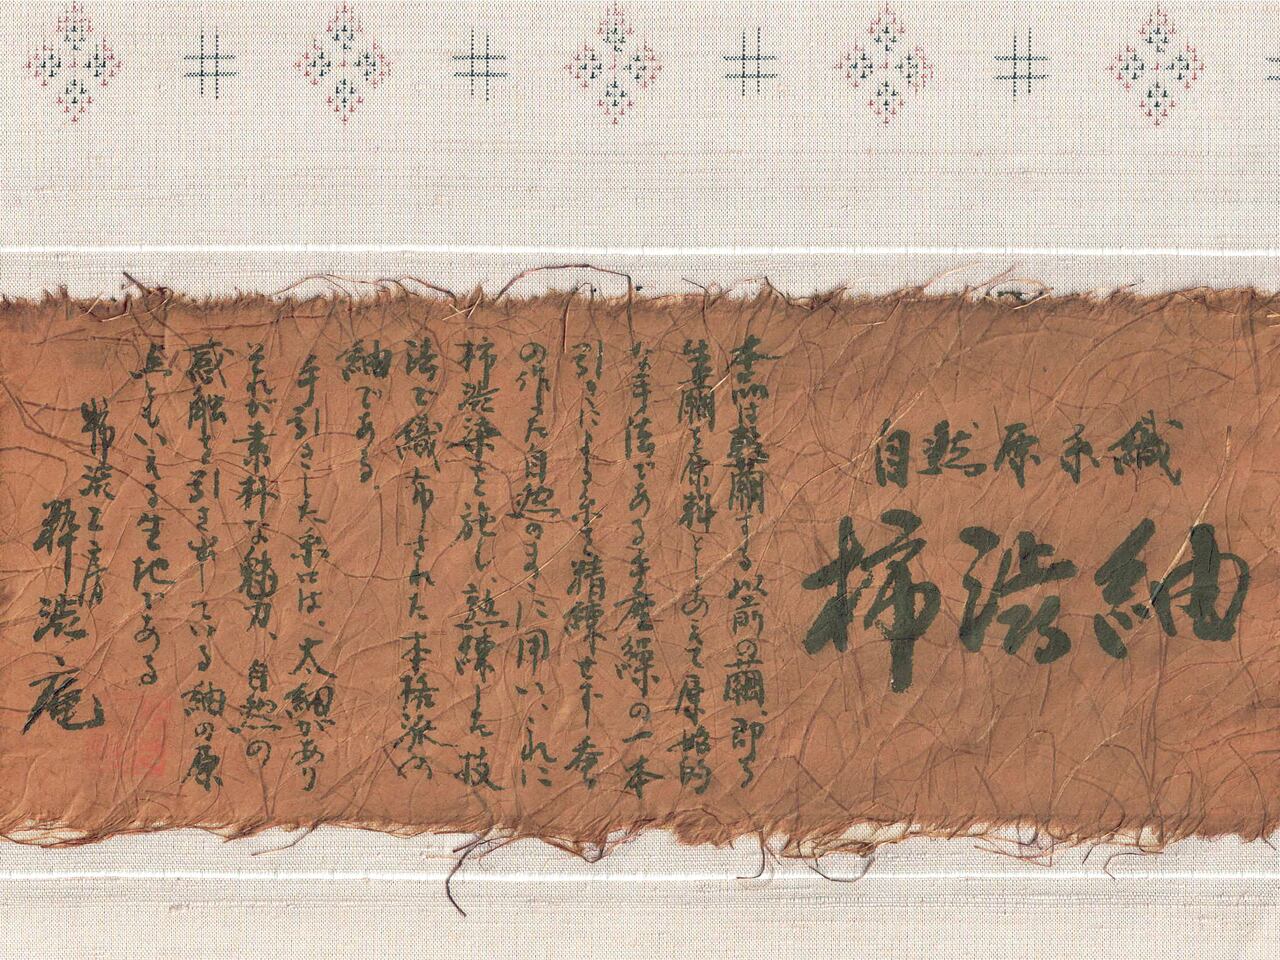 自然原糸織
柿渋紬
本品は発蛾する以前の繭、即ち
生繭を原料とし、あえて原始的
な手法である手座繰の一本
引きによる糸を精練せず
の作った自然のまゝに用い、これに
柿渋染を施し、熟練した技
法で織布された本格派の
紬である。
手引きした糸には、太細があり
それが素朴な魅力、自然の
感触を引き出している紬の原
点ともいえる生地である
柿渋工房
渋庵